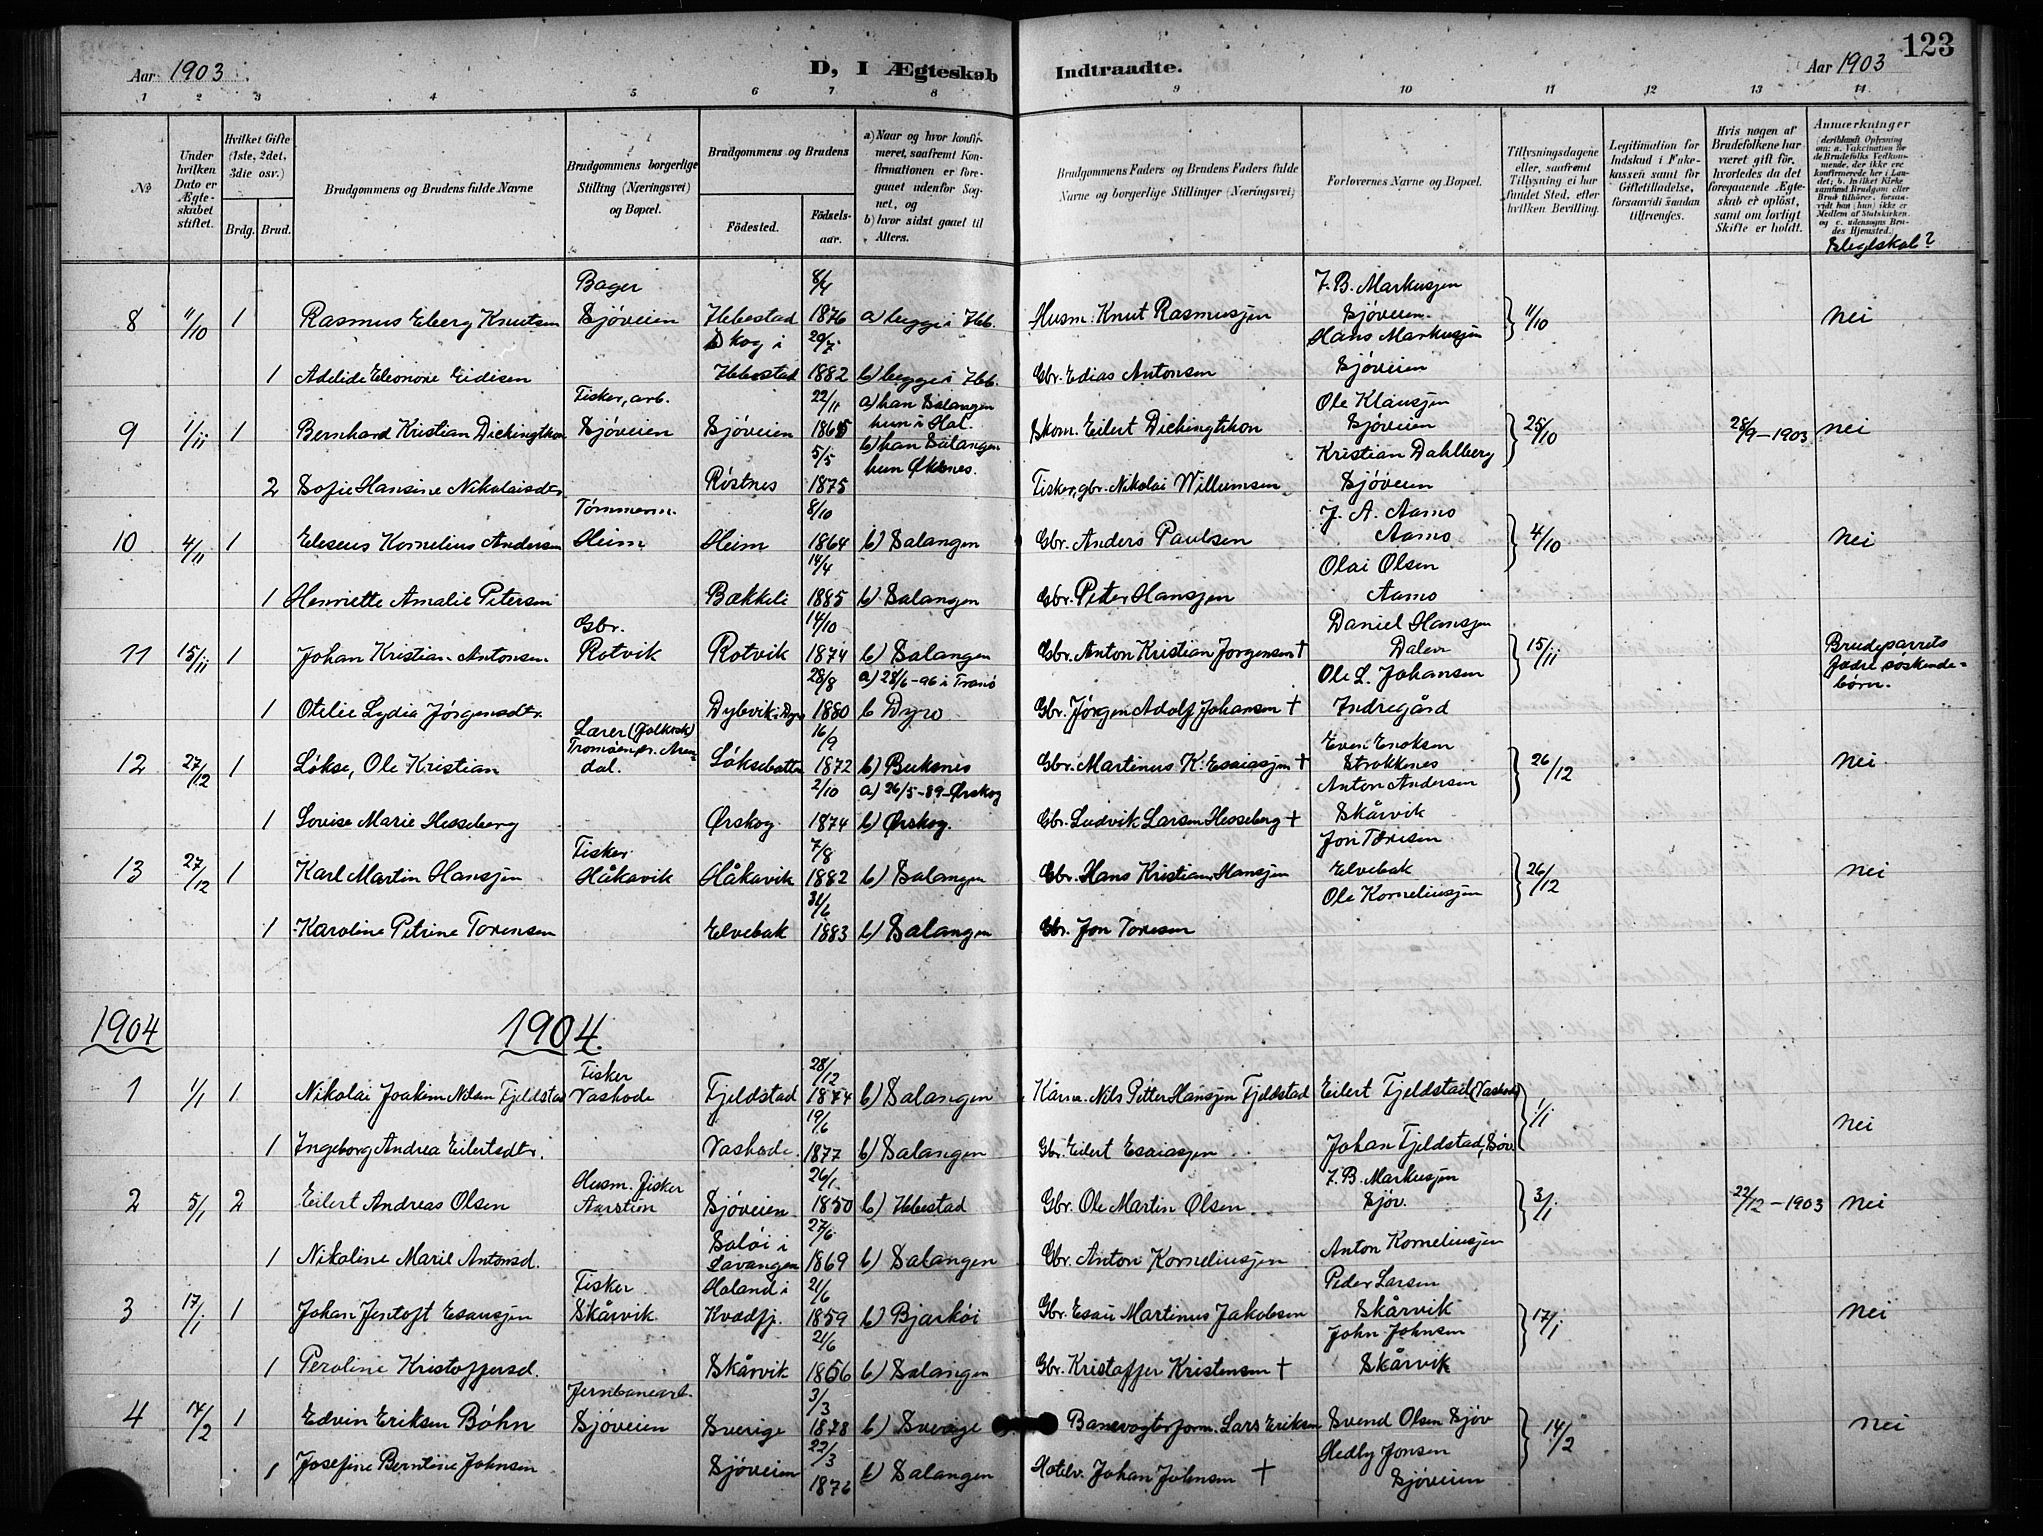 123
Aar 1903 D, I Ægteskab Indtraadte. Aar 1903
1 2 3 4 5 6 7 8 9 10 11 12 13 14
No
Under hvilken Dato er Ægteskabet stiftet.
Hvilket Gifte (1ste, 2det, 3die osv.)
Brdg. Brud.
Brudgommens og Brudens fulde Navne
Brudgommens borgerlige Stilling (Næringsvei) og Bopæl.
Brudgommens og Brudens
Fødested. Fødselsaar.
a) Naar og hvor konfirmeret, saafremt Konfirmationen er foregaaet udenfor Sognet, og
b) hvor sidst gaaet til Alters.
Brudgommens Faders og Brudens Faders fulde Navne og borgerlige Stillinger (Næringsvei)
Forlovernes Navne og Bopæl.
Tillysningsdagene eller, saafremt Tillysning ei har fundet Sted, efter hvilken Bevilling.
Legitimation for Indskud i Enkekassen samt for Giftetilladelse, forsaavidt saadan tiltrænges.
Hvis nogen af Brudefolkene har været gift før, hvorledes da det foregaaende Ægteskab er opløst, samt om lovligt Skifte er holdt.
Anmærkninger
Slegtskab?
Bager 8/4 J. B. Markusjen
8 11/10 1 Rasmus Eberg Knutsen Sjøveien Ibbestad 1876 a) begge i Ibb. Husm. Knut Rasmusjen Sjøveien 11/10 nei
Skog i 29/7 Hans Markusjen
1 Adelide Eleonore Eidisen Ibbestad 1882 b) begge i Ibb. Gbr. Edias Antonsen Sjøveien
Fisker, arb. 22/11 a) han Salangen Ole Klausjen
hun i Hal.
9 1/11 1 Bernhard Kristian Sjøveien Sjøveien 1865 b) han Salangen Skom. Eilert Sjøveien 25/10 28/9-1903 nei
5/5 hun Øksnes. Kristian Dahlberg
2 Sofie Hansine Nikolaisdtr. Røstnes 1875 Fisker, gbr. Nikolai Willumsen Sjøveien
Tømmerm. 8/10 J. A. Aamo
10 4/11 1 Eleseus Kornelius Andersen Heim Heim 1864 b) Salangen Gbr. Anders Paulsen Aamo 4/10 nei
14/4 Olai Olsen
1 Henriette Amalie Petersen Bækkeli 1885 b) Salangen Gbr. Peter Hansjen Aamo
Gbr. 14/10 Daniel Hansjen
11 15/11 1 Johan Kristian Antonsen Rotvik Rotvik 1874 b) Salangen Gbr. Anton Kristian Jørgensen † Dalen 15/11 Brudeparrets fædre søskendebørn.
28/8 a) 28/6-96 i Tranø Ole L. Johansen
1 Otelie Lydia Jørgensdtr. Dybvik i Dyrø 1880 b Dyrø Gbr. Jørgen Adolf Johansen † Indregård
Lærer (folkesk) 16/9 Even Enoksen
12 27/12 1 Løkse, Ole Kristian Tromøen pr. Arendal. Løksebotten 1872 b) Buksnes Gbr. Martinus K. Esaiasjen † Strokkenes 26/12 nei
2/10 a) 26/5-89-Ørskog Anton Andersen
1 Lovise Marie Hesseberg Ørskog 1874 b) Ørskog. Gbr. Ludvik Larsen Hesseberg † Skårvik
Fisker 7/8 Jon Toresen
13 27/12 1 Karl Martin Hansjen Håkavik Håkavik 1882 b) Salangen Gbr. Hans Kristian Hansjen Elvebak 26/12 nei
Ole Korneliusjen
1 Karoline Petrine Toresen Elvebak 1883 b) Salangen Gbr. Jon Toresen
1904 1904.
Fisker 28/12
1 1/1 1 Nikolai Joakim Nilsen Fjeldstad Vashode Fjeldstad 1874 b) Salangen Nils Petter Hansjen Fjeldstad Eilert Fjeldstad (Vashode) 1/1 nei
19/6
1 Ingeborg Andrea Eilertsdtr. Vashode. 1877 b) Salangen Gbr. Eilert Esaiasjen Johan Fjeldstad, Sjøv.
Husm. fisker 26/1 J. B. Markusjen
2 5/1 2 Eilert Andreas Olsen Aarstien Sjøveien 1850 b) Ibbestad Gbr. Ole Martin Olsen Sjøv. 3/1 22/12-1903 nei
Saløi i 27/6 Anton Korneliusjen
1 Nikoline Marie Antonsd. Lavangen 1869 b) Salangen Gbr. Anton Korneliusjen
Fisker Holand i 21/6 Peder Larsen
3 17/1 1 Johan Jentoft Esausjen Skårvik Kvædfj. 1859 b) Bjarkøi Gbr. Esau Martinus Jakobsen Skårvik 17/1 nei
21/6 John Johnsen
1 Peroline Kristoffersd. Skårvik 1856 b) Salangen Gbr. Kristoffer Kristensen † Skårvik
Jernbanearb. 3/3
4 14/2 1 Edvin Eriksen Bøhn Sjøveien Sverige 1878 b) Sverige Banevogterform. Lars Eriksen Svend Olsen Sjøv 14/2 nei
22/3 Hedly Jonsen
1 Josefine Berntine Johnsen Sjøveien 1876 b) Salangen Hotelv. Johan Johnsen † Sjøveien